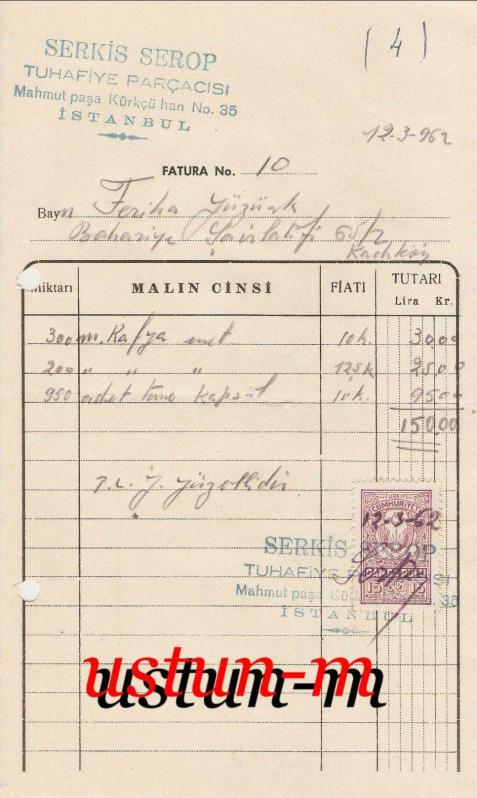 SERKİS SEROP
TUHAFİYE PARÇACISI
Mahmut paşa Kürkçü han No. 35
İSTANBUL
(4)
12-3-962
FATURA No. 10
Bayn Feriha Yüzüak
Bahariye Şair Latifi 65/2
Kadıköy
Miktarı MALIN CİNSİ FİATI TUTARI
Lira Kr.
300 m. Rafya 10 k. 30 00
200 " " " 12,5 k 25 00
950 adet kapsül 10 k. 95 00
150.00
T.L. Y. yüzellidir
TÜRKİYE
CUMHURİYETİ
12-3-62
15 15
SERKİS SEROP
TUHAFİYE PARÇACISI
Mahmut paşa Kürkçü han No. 35
İSTANBUL
ustun-m